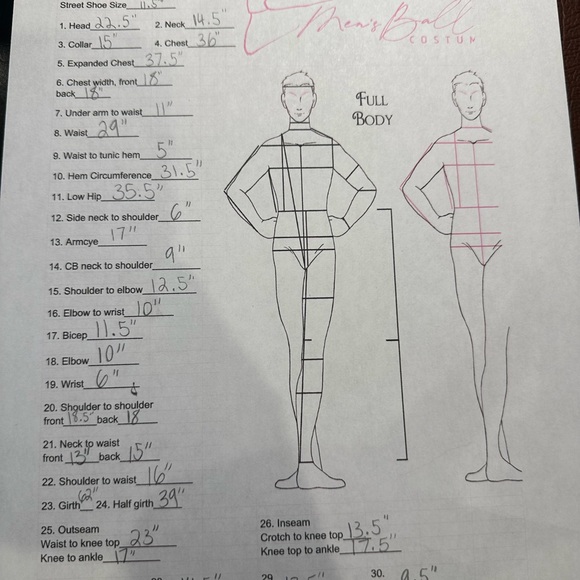 Street Shoe Size 11.5"
1. Head 22.5" 2. Neck 14.5"
3. Collar 15" 4. Chest 36"
5. Expanded Chest 37.5"
6. Chest width, front 18"
back 18"
7. Under arm to waist 11"
8. Waist 29"
9. Waist to tunic hem 5"
10. Hem Circumference 31.5"
11. Low Hip 35.5"
12. Side neck to shoulder 6"
13. Armcye 17"
14. CB neck to shoulder 9"
15. Shoulder to elbow 12.5"
16. Elbow to wrist 10"
17. Bicep 11.5"
18. Elbow 10"
19. Wrist 6"
20. Shoulder to shoulder
front 18.5" back 18
21. Neck to waist
front 13" back 15"
22. Shoulder to waist 16"
23. Girth 62" 24. Half girth 39"
25. Outseam
Waist to knee top 23"
Knee to ankle 17"
Men's Ball
COSTUM
FULL
BODY
26. Inseam
Crotch to knee top 13.5"
Knee top to ankle 17.5"
29.
30. 9.5"